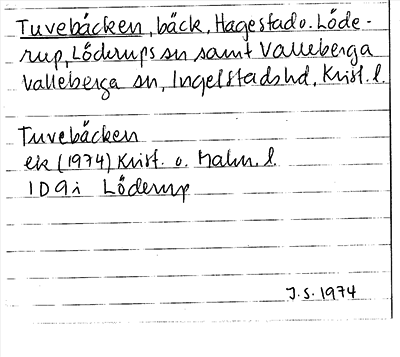 Tuvebäcken, bäck, Hagestad o. Löde-
rup, Löderups sn samt Valleberga
Valleberga sn, Ingelstads hd, Krist. l.
Tuvebäcken
ek (1974) Krist. o. Malm. l.
1D9i Löderup
J.S. 1974